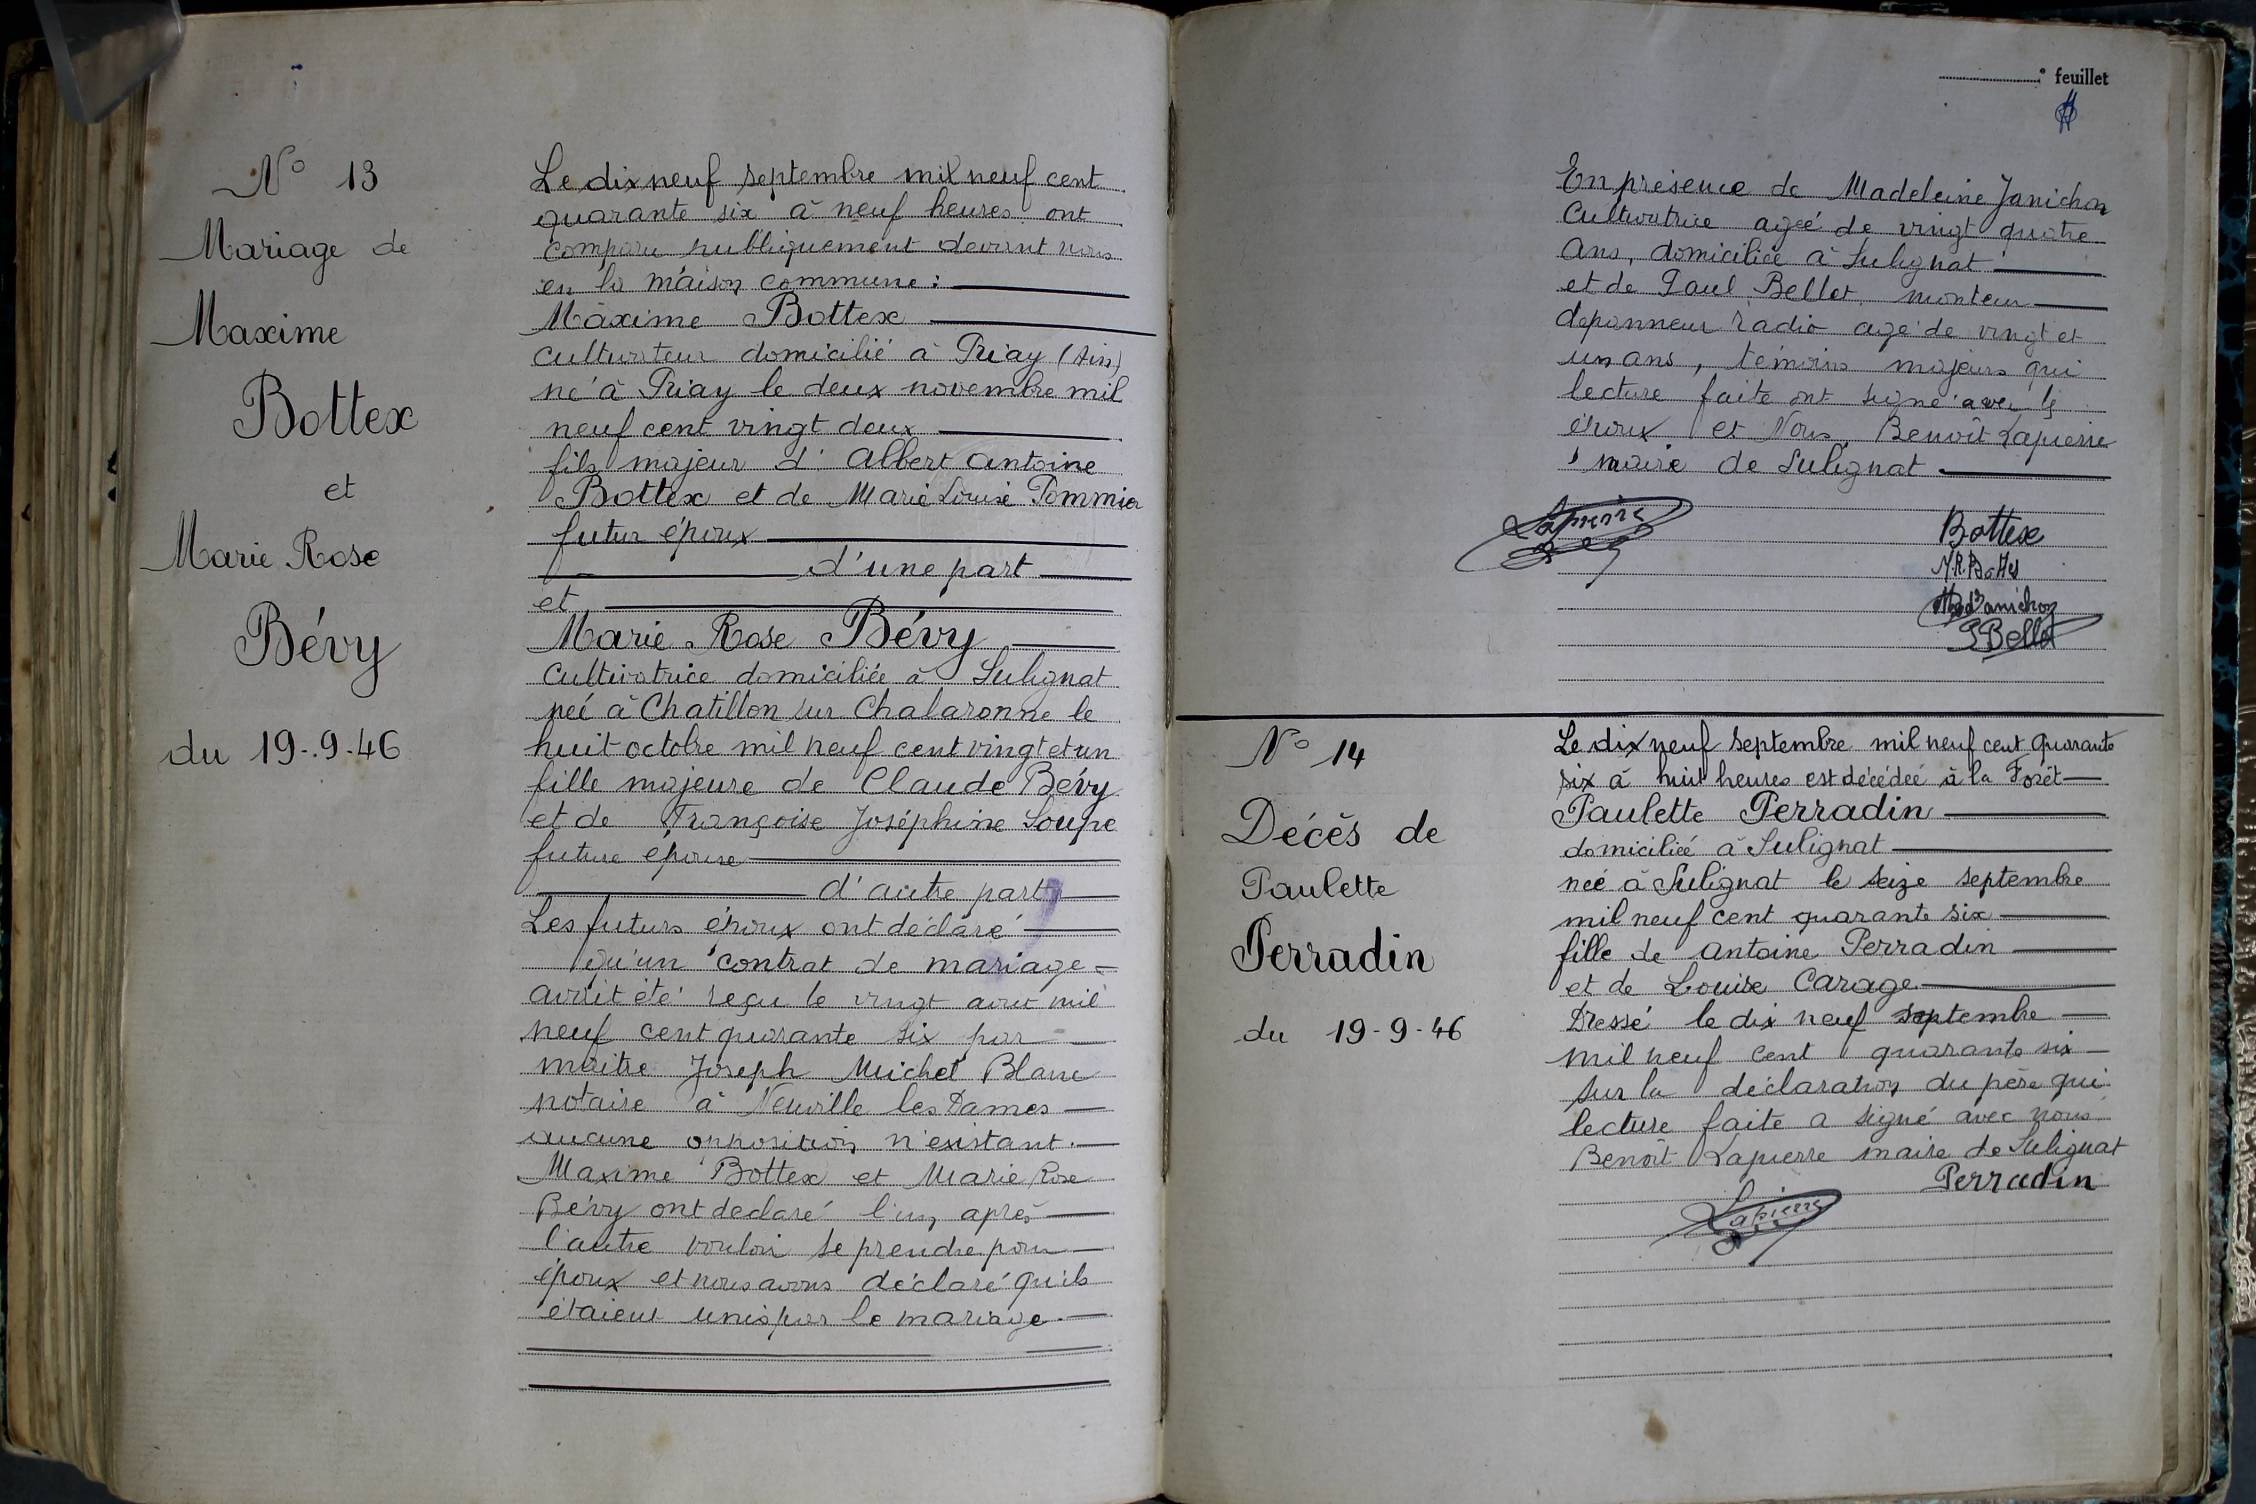 N° 13
Mariage de
Maxime
Bottex
et
Marie Rose
Bévy
du 19-9-46
Le dix neuf septembre mil neuf cent
quarante six à neuf heures ont
comparu publiquement devant nous
en la maison commune :
Maxime Bottex
cultivateur domicilié à Priay (Ain)
né à Priay le deux novembre mil
neuf cent vingt deux
fils majeur d' Albert Antoine
Bottex et de Marie Louise Pommier
futur époux
d'une part
et
Marie Rose Bévy
cultivatrice domiciliée à Sulignat
neé à Chatillon sur Chalaronne le
huit octobre mil neuf cent vingt et un
fille majeure de Claude Bévy
et de Françoise Joséphine Soupe
future épouse
d'autre part
Les futurs époux ont déclaré
qu'un contrat de mariage
avait été reçu le vingt aout mil
neuf cent quarante six par
maitre Joseph Michel Blanc
notaire à Neuville les Dames
aucune opposition n'existant.
Maxime Bottex et Marie Rose
Bévy ont declaré l'un après
l'autre vouloir se prendre pour
époux et nous avons déclaré qu'ils
étaient unis par le mariage.
° feuillet
En présence de Madeleine Janichon
Cultivatrice ageé de vingt quatre
ans, domiciliée à Sulignat
et de Paul Bellet, monteur
depanneur radio agé de vingt et
un ans, témoins majeurs qui
lecture faite ont signé avec les
époux et Nous, Benoît Lapierre
maire de Sulignat
Lapierre
Bottex
M.R. Bottex
Mad Janichon
P Bellet
N° 14
Décès de
Paulette
Perradin
du 19-9-46
Le dix neuf septembre mil neuf cent quarante
six à huit heures est décédeé à la Forêt
Paulette Perradin
domiciliée à Sulignat
neé à Sulignat le seize septembre
mil neuf cent quarante six
fille de Antoine Perradin
et de Louise Carage
Dressé le dix neuf septembre
mil neuf cent quarante six
sur la déclaration du père qui
lecture faite a signé avec nous
Benoît Lapierre maire de Sulignat
Perradin
Lapierre